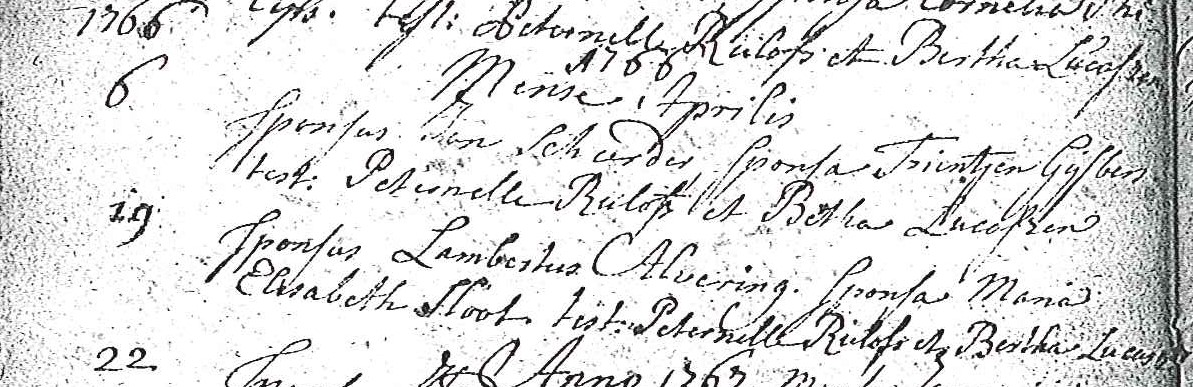 1766 test: Peternelle Rúlofs et Bertha Lucassen
1766
6 Mense Aprilis
Sponsus Jan Scheerder, Sponsa Trientjen Gijsbers
test: Peternelle Rúlofs et Betha Lucassen
19 Sponsus Lambertus Alvering. Sponsa Maria
Elisabeth Sloot. test: Peternelle Rúlofs et Bertha Lucassen
22 Anno 1767